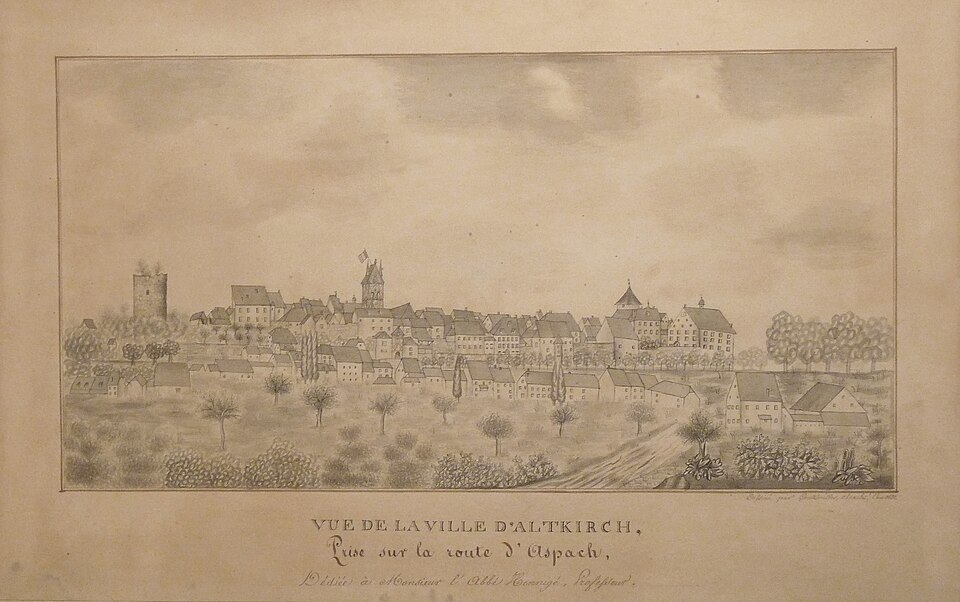 Dessiné par
VUE DE LA VILLE D'ALTKIRCH,
Prise sur la route d'Aspach,
Dédiée à Monsieur l'Abbé Hennngé, Professeur.